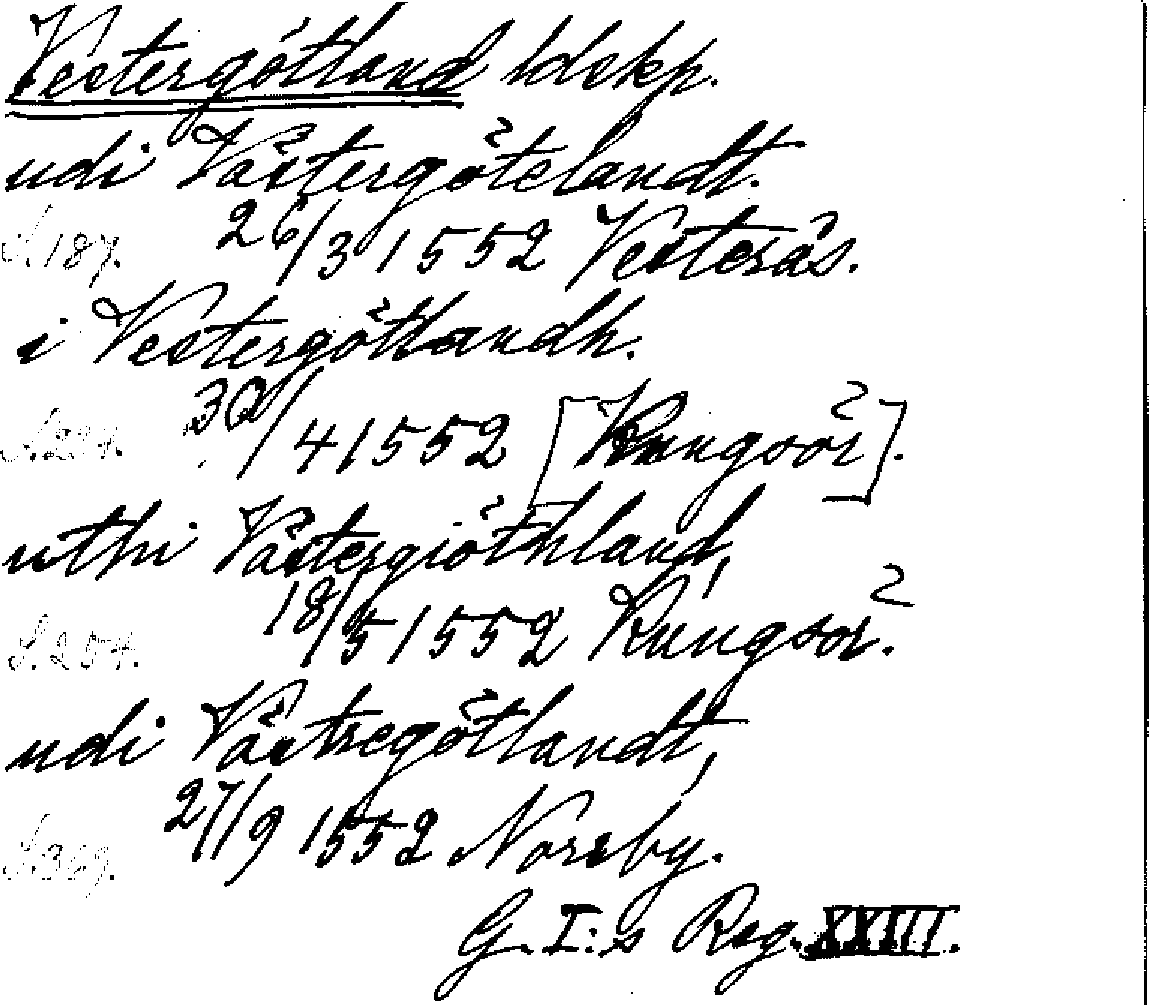 Vestergötland ldskp.
udi Västergötelandt.
S. 187. 26/3 1552 Vesterås.
i Vestergötlandh.
S. 224. 30/4 1552 [Kungsör].
uthi Västergiöthland,
S. 254. 18/5 1552 Kungsör.
udi Västregötlandt,
S. 369. 27/9 1552 Noreby.
G. I:s Reg. XXIII.